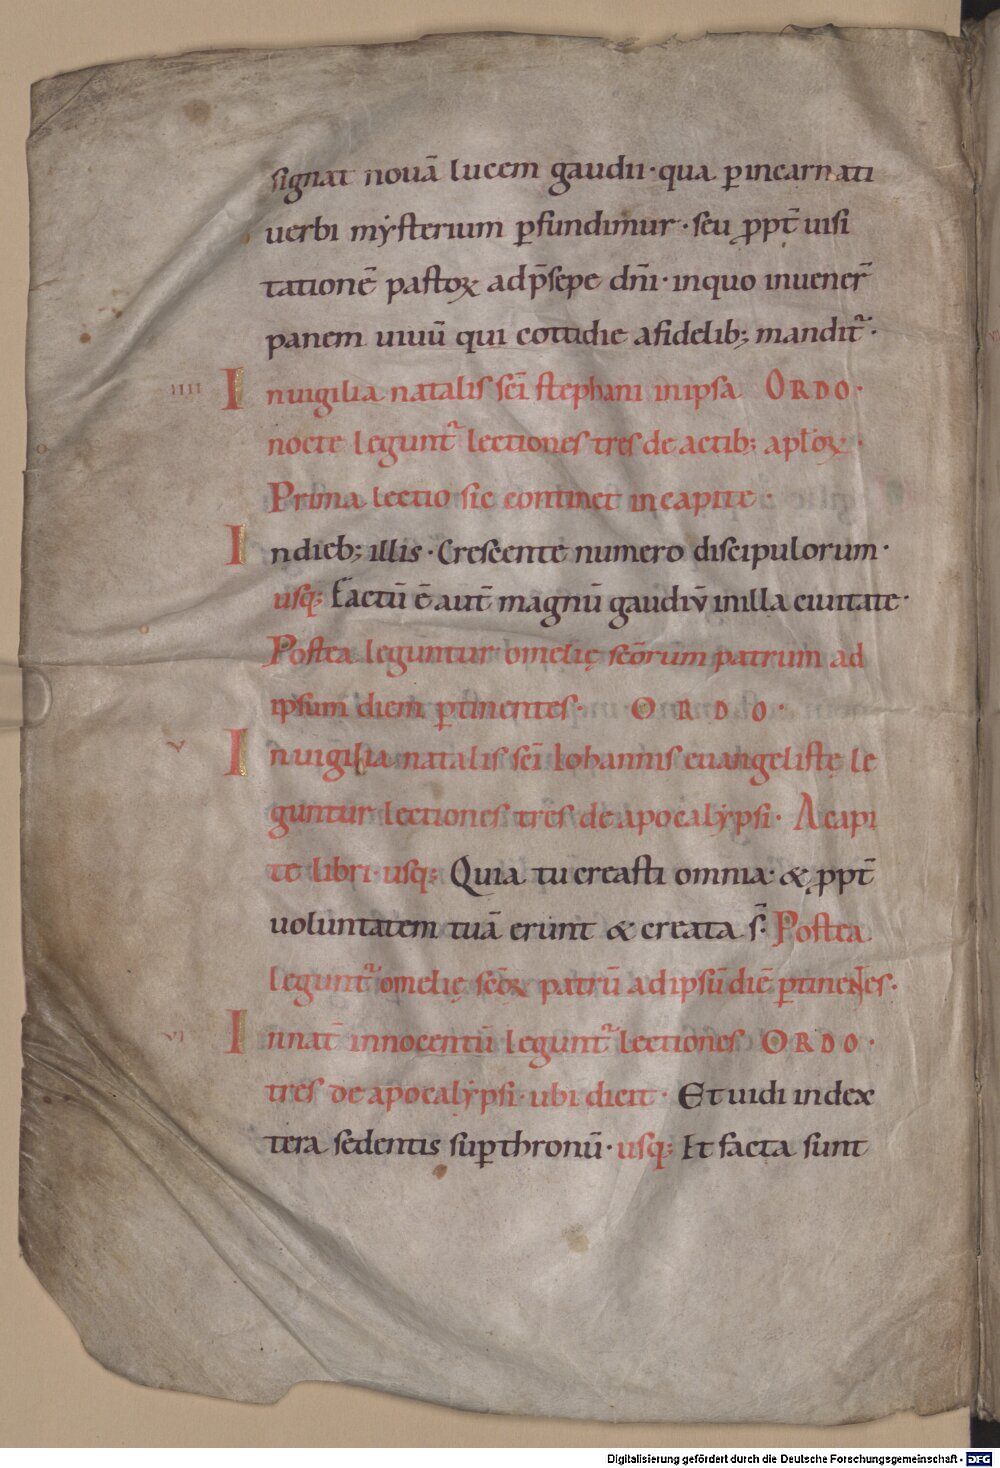 signat nouā lucem gaudii · qua ꝑincarnati
uerbi mẏsterium ꝑfundimur · seu ꝓpt̄ uisi
tationē pastoꝝ adp̄sepe dn̄i · inquo inuener̄
panem uiuū qui cottidie afidelib; mandit᷑ ·
IIII In uigilia natalis sc̄i stephani inipsa ORDO ·
nocte legunt᷑ lectiones tres de actib; apl̄oꝝ ·
Prima lectio sic continet incapite ·
In dieb; illis · Crescente numero discipulorum ·
usq; Factū ē aut̄ magnū gaudiv̄ inilla ciuitate ·
Postea leguntur omelię sc̄orum patrum ad
ipsum diem ꝑtinentes · ORDO ·
V In uigilia natalis sc̄i Iohannis euangelistę le
guntur lectiones tres de apocalẏpsi · Acapi
te libri · usq; Quia tu creasti omnia · & ꝓpt̄
voluntatem tuā erunt & creata s̄ · Postea
legunt᷑ omelię sc̄oꝝ patrū adipsū diē ꝑtinentes ·
VI In nat̄ innocentū legunt᷑ lectiones ORDO ·
tres de apocalẏpsi · ubi dicit · Et uidi index
tera sedentis suꝑthronū · usq; Et facta sunt
Digitalisierung gefördert durch die Deutsche Forschungsgemeinschaft - DFG